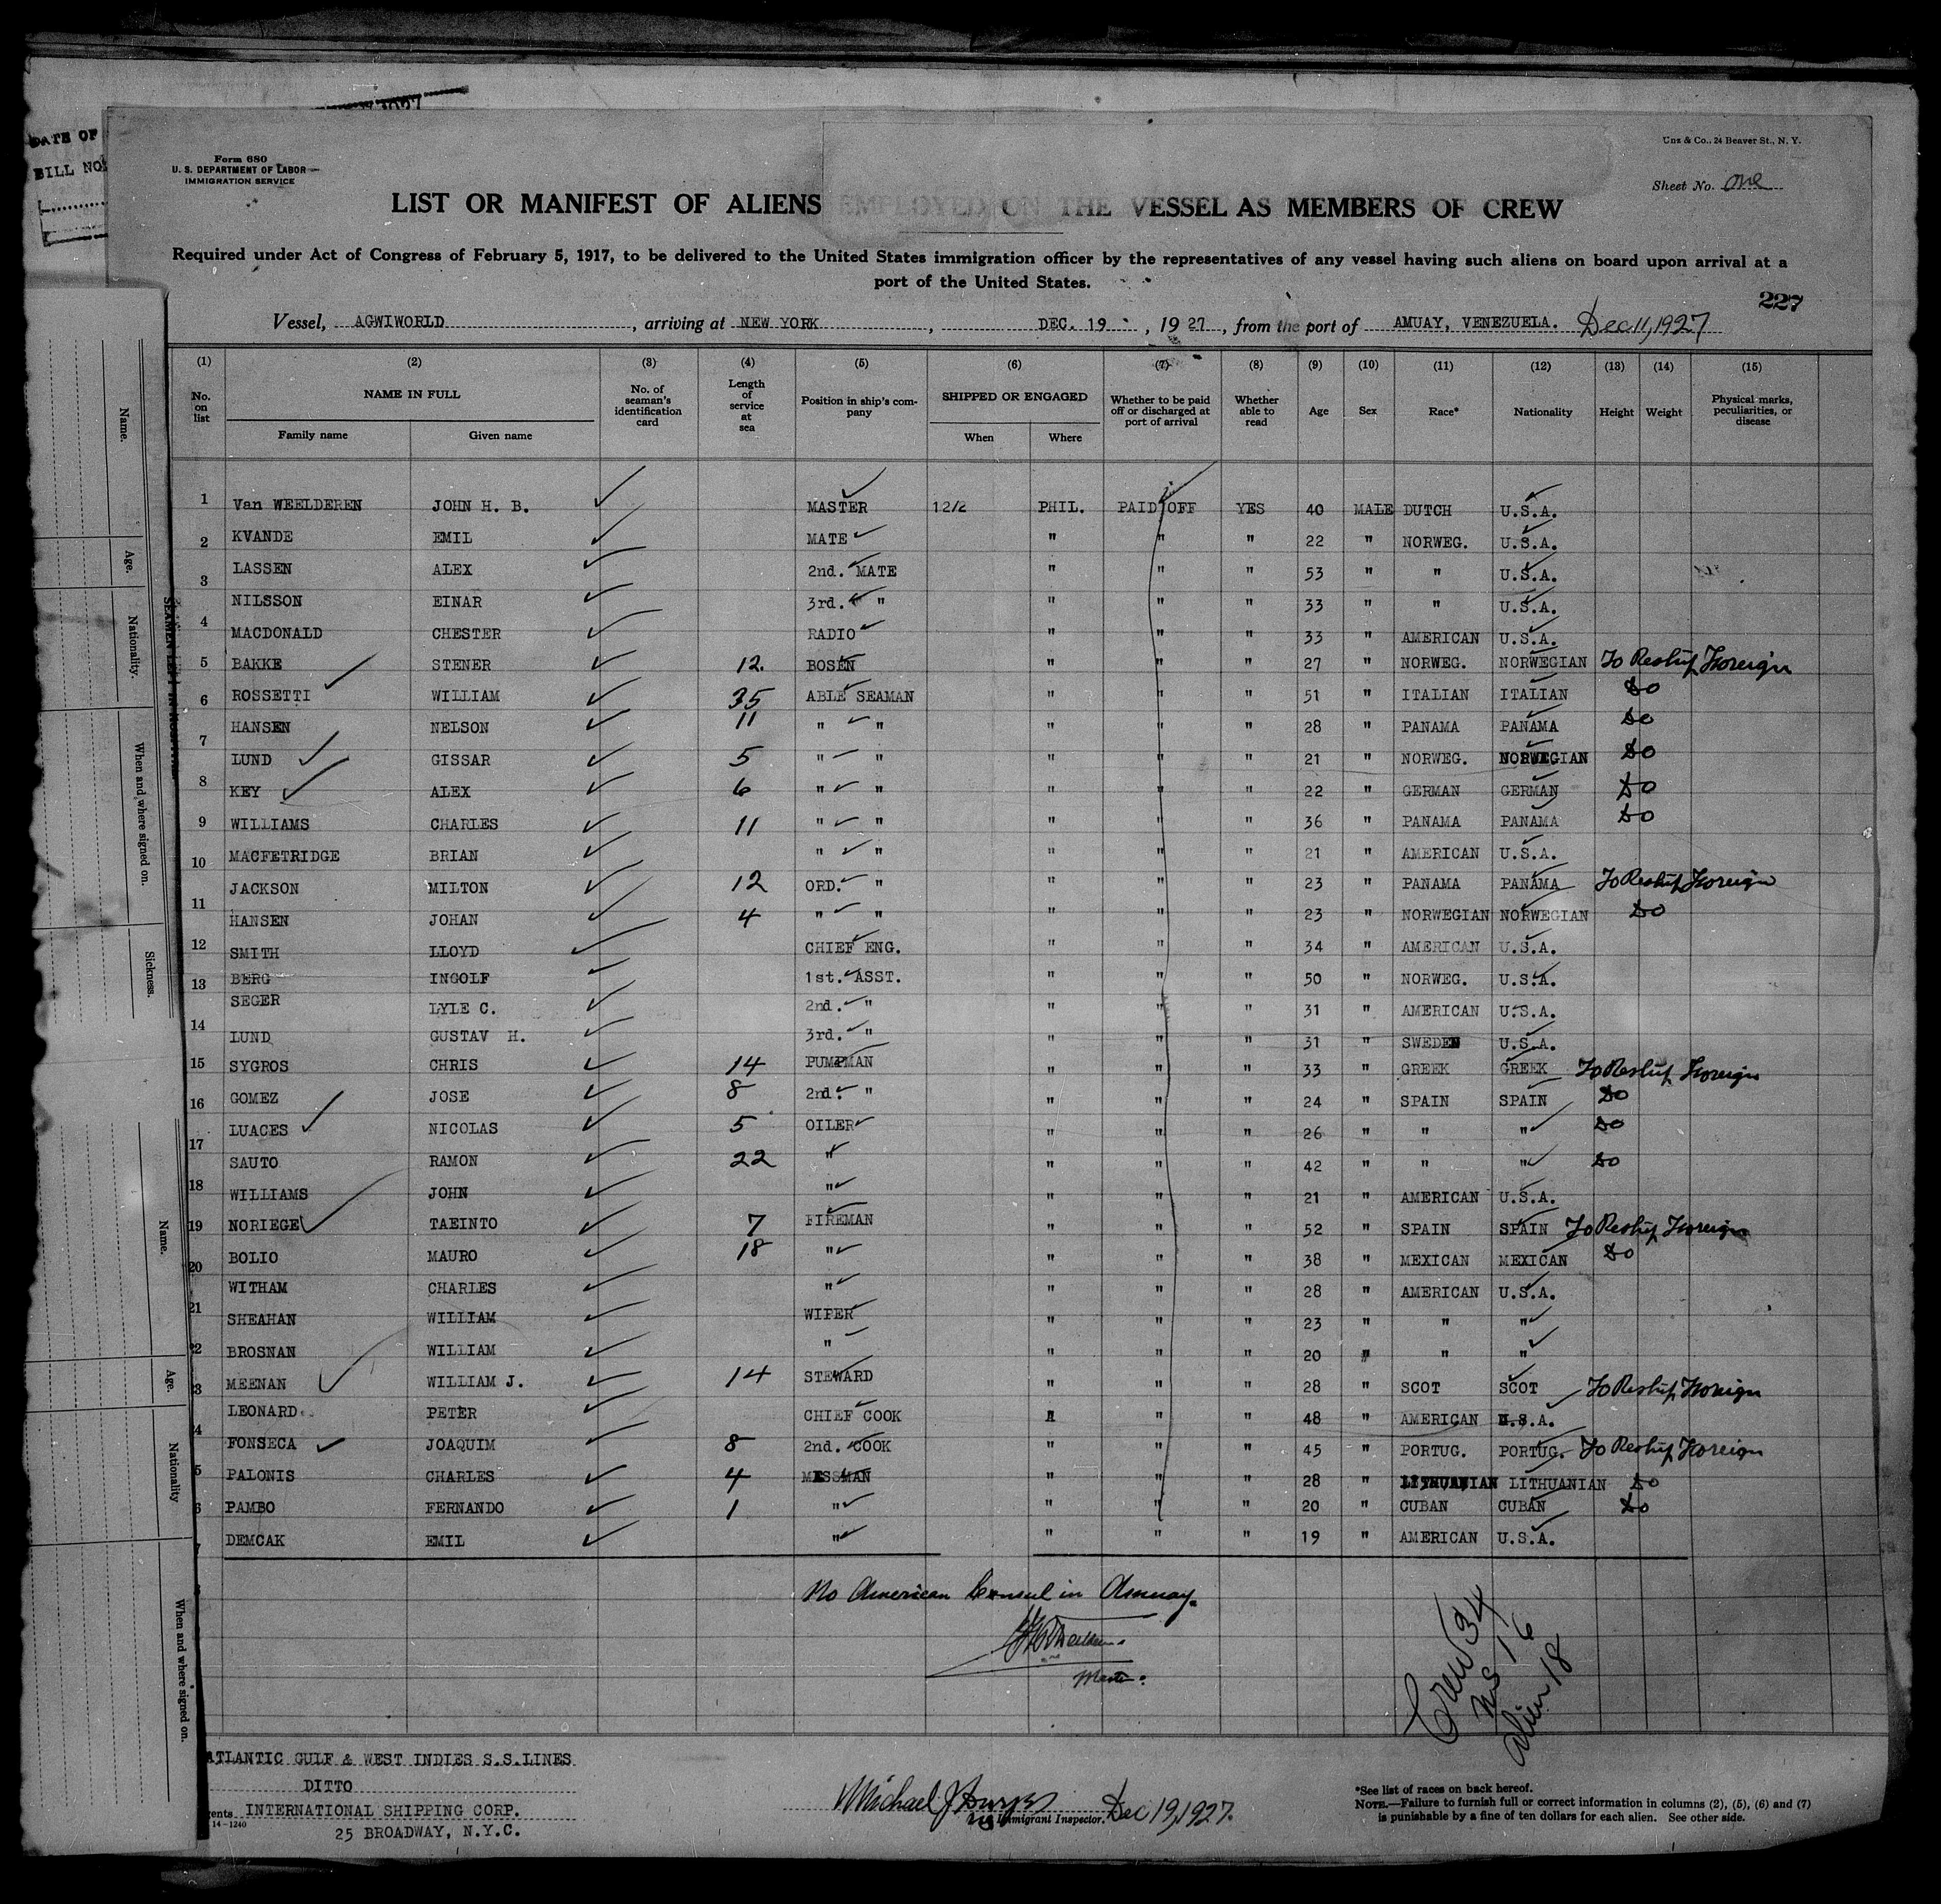 DATE OF
BILL NO.
Form 680
U. S. DEPARTMENT OF LABOR
IMMIGRATION SERVICE
Uns & Co., 24 Beaver St., N. Y.
Sheet No. one
LIST OR MANIFEST OF ALIENS EMPLOYED ON THE VESSEL AS MEMBERS OF CREW
Required under Act of Congress of February 5, 1917, to be delivered to the United States immigration officer by the representatives of any vessel having such aliens on board upon arrival at a
port of the United States.
227
Vessel, AGWIWORLD, arriving at NEW YORK, DEC. 19, 1927, from the port of AMUAY, VENEZUELA. Dec 11, 1927
(1) (2) (3) (4) (5) (6) (7) (8) (9) (10) (11) (12) (13) (14) (15)
No. on list NAME IN FULL Family name Given name No. of seaman's identification card Length of service at sea Position in ship's company SHIPPED OR ENGAGED When Where Whether to be paid off or discharged at port of arrival Whether able to read Age Sex Race* Nationality Height Weight Physical marks, peculiarities, or disease
1 Van WEELDEREN JOHN H. B. MASTER 12/2 PHIL. PAID OFF YES 40 MALE DUTCH U.S.A.
2 KVANDE EMIL MATE " " " 22 " NORWEG. U.S.A.
3 LASSEN ALEX 2nd. MATE " " " 53 " " U.S.A.
NILSSON EINAR 3rd. " " " " 33 " " U.S.A.
4 MACDONALD CHESTER RADIO " " " 33 " AMERICAN U.S.A.
5 BAKKE STENER 12. BOSEN " " " 27 " NORWEG. NORWEGIAN To Reship Foreign
6 ROSSETTI WILLIAM 35 ABLE SEAMAN " " " 51 " ITALIAN ITALIAN Do
HANSEN NELSON 11 " " " " " 28 " PANAMA PANAMA Do
7 LUND GISSAR 5 " " " " " 21 " NORWEG. NORWEGIAN Do
8 KEY ALEX 6 " " " " " 22 " GERMAN GERMAN Do
9 WILLIAMS CHARLES 11 " " " " " 36 " PANAMA PANAMA Do
10 MACFETRIDGE BRIAN " " " " " 21 " AMERICAN U.S.A.
JACKSON MILTON 12 ORD. " " " " 23 " PANAMA PANAMA To Reship Foreign
11 HANSEN JOHAN 4 " " " " " 23 " NORWEGIAN NORWEGIAN Do
12 SMITH LLOYD CHIEF ENG. " " " 34 " AMERICAN U.S.A.
13 BERG INGOLF 1st. ASST. " " " 50 " NORWEG. U.S.A.
SEGER LYLE C. 2nd. " " " " 31 " AMERICAN U.S.A.
14 LUND GUSTAV H. 3rd. " " " " 31 " SWEDEN U.S.A.
15 SYGROS CHRIS 14 PUMPMAN " " " 33 " GREEK GREEK To Reship Foreign
16 GOMEZ JOSE 8 2nd. " " " " 24 " SPAIN SPAIN Do
LUACES NICOLAS 5 OILER " " " 26 " " " Do
17 SAUTO RAMON 22 " " " " 42 " " " Do
18 WILLIAMS JOHN " " " " 21 " AMERICAN U.S.A.
19 NORIEGE TAEINTO 7 FIREMAN " " " 52 " SPAIN SPAIN To Reship Foreign
20 BOLIO MAURO 18 " " " " 38 " MEXICAN MEXICAN Do
WITHAM CHARLES " " " " 28 " AMERICAN U.S.A.
21 SHEAHAN WILLIAM WIPER " " " 23 " " "
22 BROSNAN WILLIAM " " " " 20 " " "
3 MEENAN WILLIAM J. 14 STEWARD " " " 28 " SCOT SCOT To Reship Foreign
LEONARD PETER CHIEF COOK " " " 48 " AMERICAN U.S.A.
4 FONSECA JOAQUIM 8 2nd. COOK " " " 45 " PORTUG. PORTUG. To Reship Foreign
5 PALONIS CHARLES 4 MESSMAN " " " 28 " LITHUANIAN LITHUANIAN Do
6 PAMBO FERNANDO 1 " " " " 20 " CUBAN CUBAN Do
7 DEMCAK EMIL " " " " 19 " AMERICAN U.S.A.
No American Consul in Amuay.
Master.
Crew 34
US 16
Alien 18
ATLANTIC GULF & WEST INDIES S.S.LINES
DITTO
ents INTERNATIONAL SHIPPING CORP.
14-1240
25 BROADWAY, N.Y.C.
Michael J
Immigrant Inspector. Dec 19, 1927.
*See list of races on back hereof.
NOTE.—Failure to furnish full or correct information in columns (2), (5), (6) and (7)
is punishable by a fine of ten dollars for each alien. See other side.
Name.
Age.
Nationality.
When and where signed on.
Sickness.
Name.
Age.
Nationality
When and where signed on.